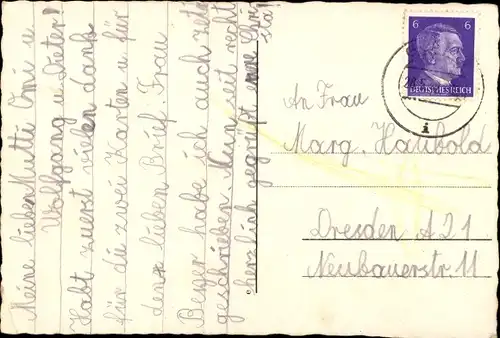 Meine lieben Mutti Omi u
Wolfgang u Dieter!
Habt zuerst vielen dank
für die zwei Karten u für
den lieben Brief. Frau
Beyer habe ich auch
geschrieben. Nun seit recht
herzlich gegrüßt
6 6
DEUTSCHES REICH
An Frau
Marg. Haubold
Dresden A 21
Neubauerstr. 11